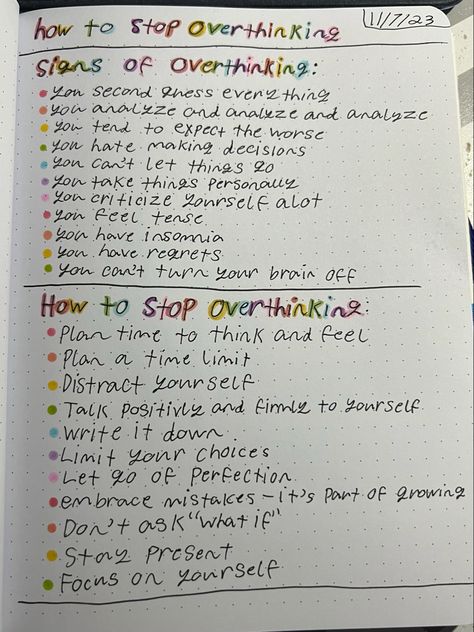 how to STOP Overthinking
11/7/23
Signs of Overthinking:
• You second guess everything
• You analyze and analyze and analyze
• You tend to expect the worse
• You hate making decisions
• You can't let things go
• You take things personally
• You criticize yourself alot
• You feel tense
• You have insomnia
• You have regrets
• You can't turn your brain off
How to STOP Overthinking:
• Plan time to think and feel
• Plan a time limit
• Distract yourself
• Talk positivly and firmly to yourself
• Write it down
• Limit your choices
• Let go of perfection
• embrace mistakes - it's part of growing
• Don't ask "what if"
• Stay present
• Focus on yourself